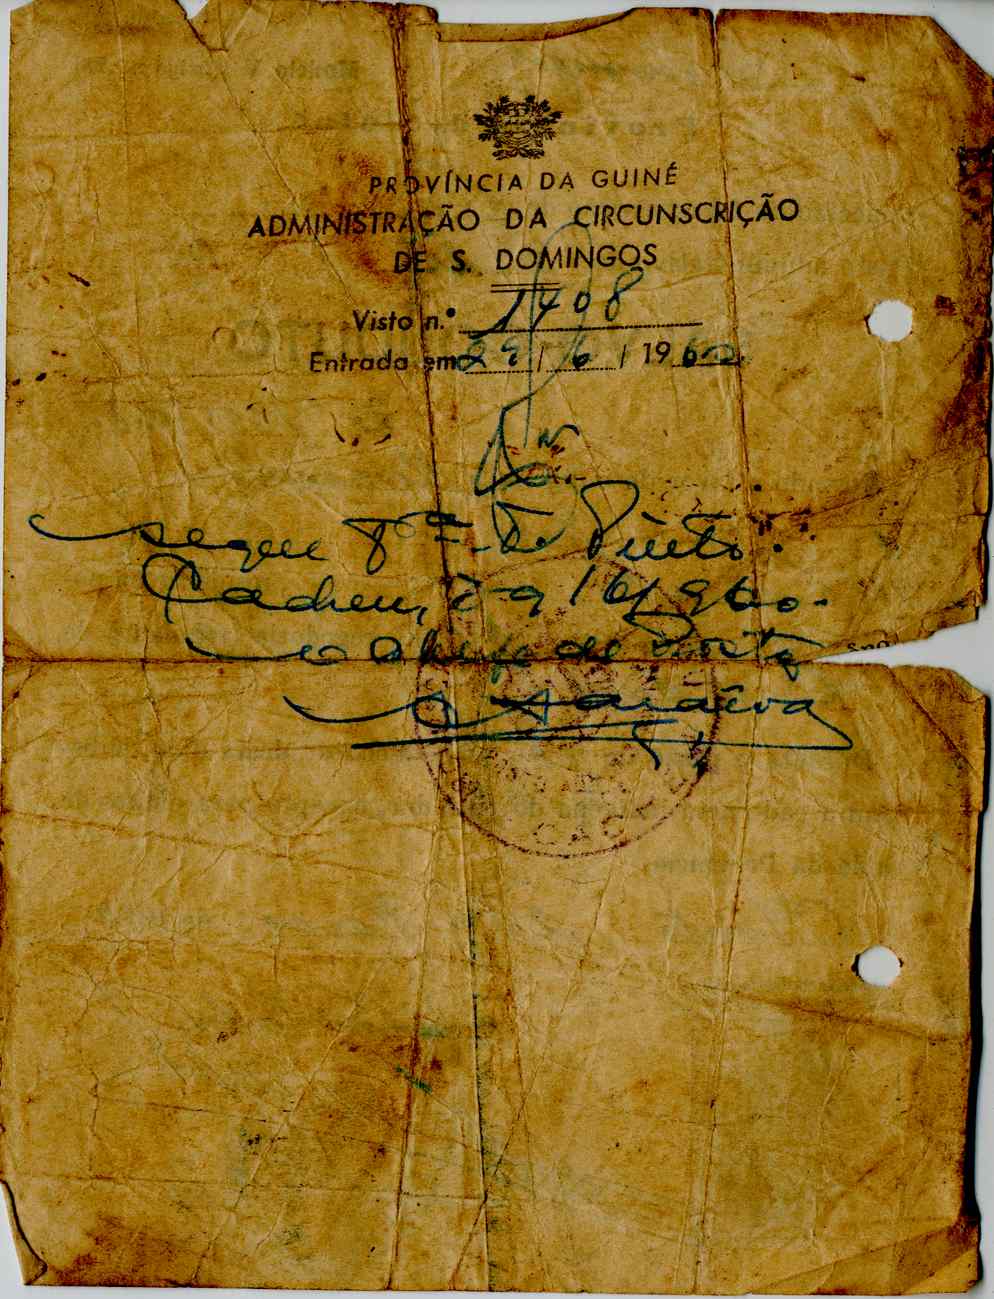 PROVÍNCIA DA GUINÉ
ADMINISTRAÇÃO DA CIRCUNSCRIÇÃO
DE S. DOMINGOS
Visto n.º 1408
Entrada em 29 / 6 / 1960
segue pª. Tº Pinto.
Cacheu, 29/6/960.
o Chefe de Posto
Saraiva
CAC